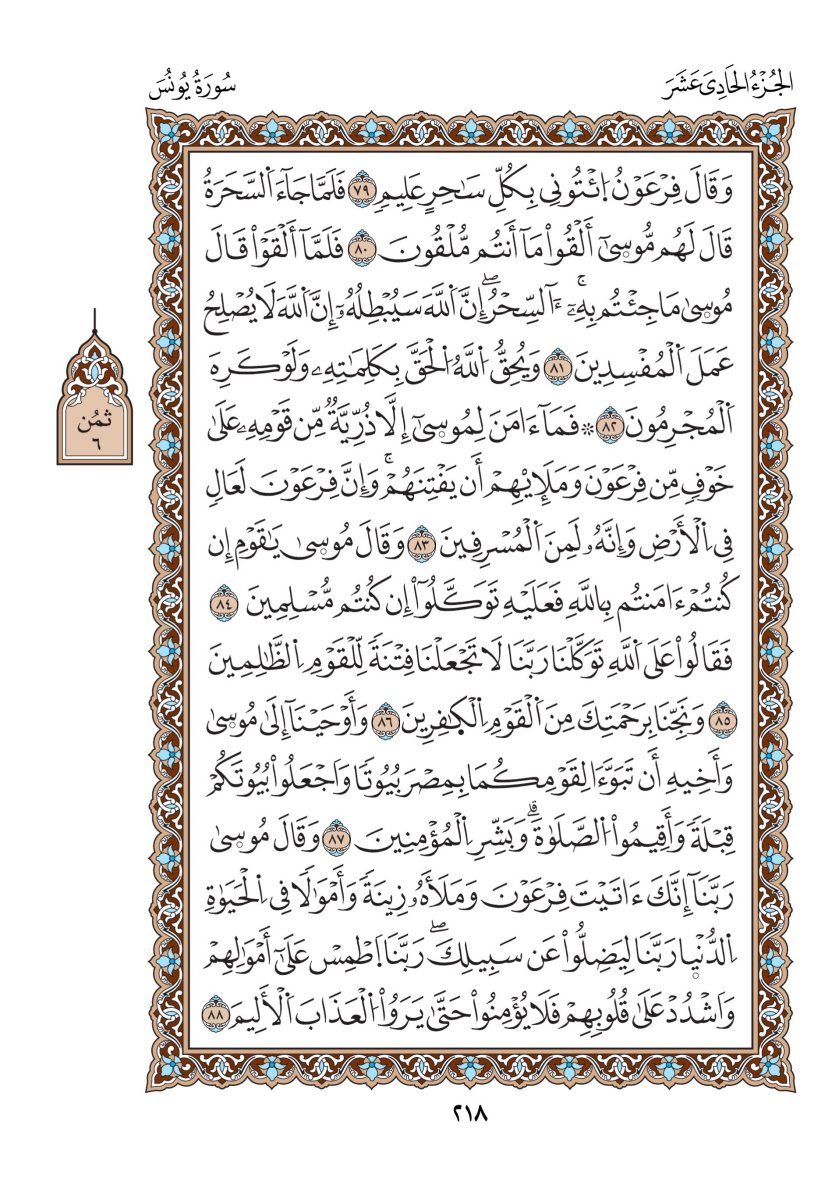 الجُزْءُ الحَادِىَ عَشَرَ
سُورَةُ يُونُسَ
وَقَالَ فِرْعَوْنُ اُ۪ئْتُونِي بِكُلِّ سَٰحِرٍ عَلِيمٖ ٧٩ فَلَمَّا جَآءَ اَ۬لسَّحَرَةُ
قَالَ لَهُم مُّوس۪يٰٓ أَلْقُواْ مَآ أَنتُم مُّلْقُونَ ٨٠ فَلَمَّآ أَلْقَوْاْ قَالَ
مُوس۪يٰ مَا جِئْتُم بِهِۦٓ ءَآلسِّحْرُۖ إِنَّ اَ۬للَّهَ سَيُبْطِلُهُۥٓ إِنَّ اَ۬للَّهَ لَا يُصْلِحُ
عَمَلَ اَ۬لْمُفْسِدِينَ ٨١ وَيُحِقُّ اُ۬للَّهُ اُ۬لْحَقَّ بِكَلِمَٰتِهِۦ وَلَوْ كَرِهَ
اَ۬لْمُجْرِمُونَ ٨٢ ۞ فَمَآ ءَامَنَ لِمُوس۪يٰٓ إِلَّا ذُرِّيَّةٞ مِّن قَوْمِهِۦ عَلَىٰ
خَوْفٖ مِّن فِرْعَوْنَ وَمَلَإِيْهِمْ أَن يَفْتِنَهُمْۚ وَإِنَّ فِرْعَوْنَ لَعَالٖ
فِي اِ۬لْأَرْضِ وَإِنَّهُۥ لَمِنَ اَ۬لْمُسْرِفِينَ ٨٣ وَقَالَ مُوس۪يٰ يَٰقَوْمِ إِن
كُنتُمْ ءَامَنتُم بِاللَّهِ فَعَلَيْهِ تَوَكَّلُوٓاْ إِن كُنتُم مُّسْلِمِينَ ٨٤
فَقَالُواْ عَلَى اَ۬للَّهِ تَوَكَّلْنَا رَبَّنَا لَا تَجْعَلْنَا فِتْنَةٗ لِّلْقَوْمِ اِ۬لظَّٰلِمِينَ
٨٥ وَنَجِّنَا بِرَحْمَتِكَ مِنَ اَ۬لْقَوْمِ اِ۬لْكٰ۪فِرِينَ ٨٦ وَأَوْحَيْنَآ إِلَىٰ مُوس۪يٰ
وَأَخِيهِ أَن تَبَوَّءَا لِقَوْمِكُمَا بِمِصْرَ بُيُوتٗا وَاجْعَلُواْ بُيُوتَكُمْ
قِبْلَةٗ وَأَقِيمُواْ اُ۬لصَّلَوٰةَۗ وَبَشِّرِ اِ۬لْمُؤْمِنِينَ ٨٧ وَقَالَ مُوس۪يٰ
رَبَّنَآ إِنَّكَ ءَاتَيْتَ فِرْعَوْنَ وَمَلَأَهُۥ زِينَةٗ وَأَمْوَٰلٗا فِي اِ۬لْحَيَوٰةِ
اِ۬لدُّنْي۪ا رَبَّنَا لِيَضِلُّواْ عَن سَبِيلِكَۖ رَبَّنَا اَ۪طْمِسْ عَلَىٰٓ أَمْوَٰلِهِمْ
وَاشْدُدْ عَلَىٰ قُلُوبِهِمْ فَلَا يُؤْمِنُواْ حَتَّىٰ يَرَوُاْ اُ۬لْعَذَابَ اَ۬لْأَلِيمَ ٨٨
ثمُن
٦
٢١٨